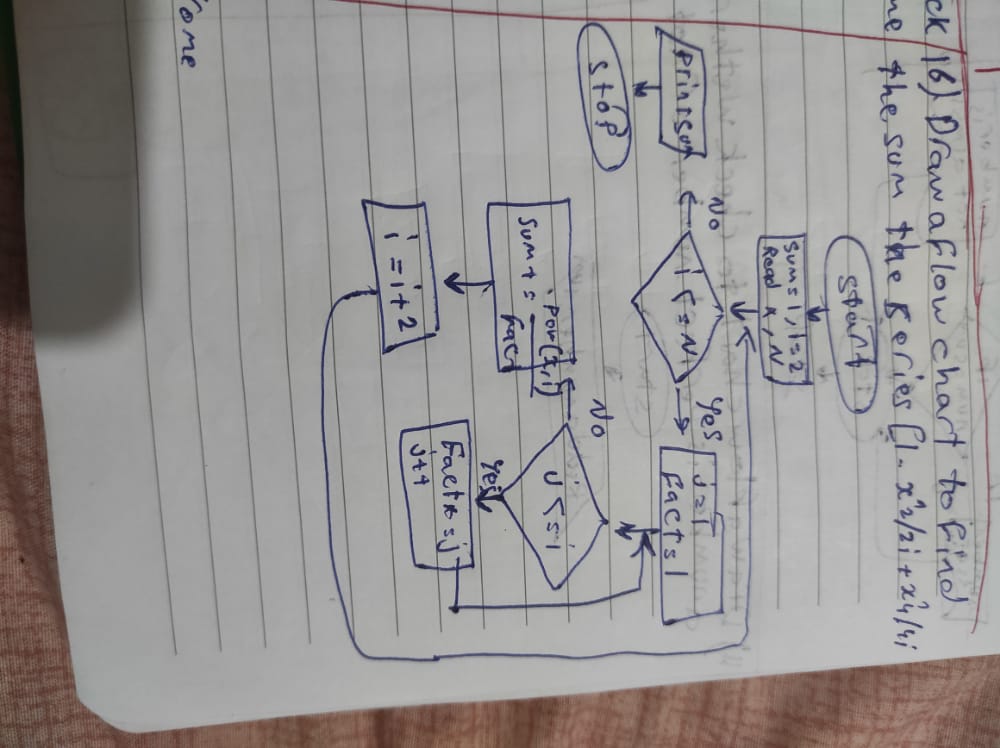 ck 16) Draw a flow chart to find
me the sum the series [1 - x^2/2i + x^4/4i
start
Sum=1, i=2
Read x, N
i<=N
No
Yes
Print sum
stop
J=1
fact=1
J<=i
No
Yes
Fact*=j
J++
Sum+=
pow(x,i)
fact
i=i+2
ome